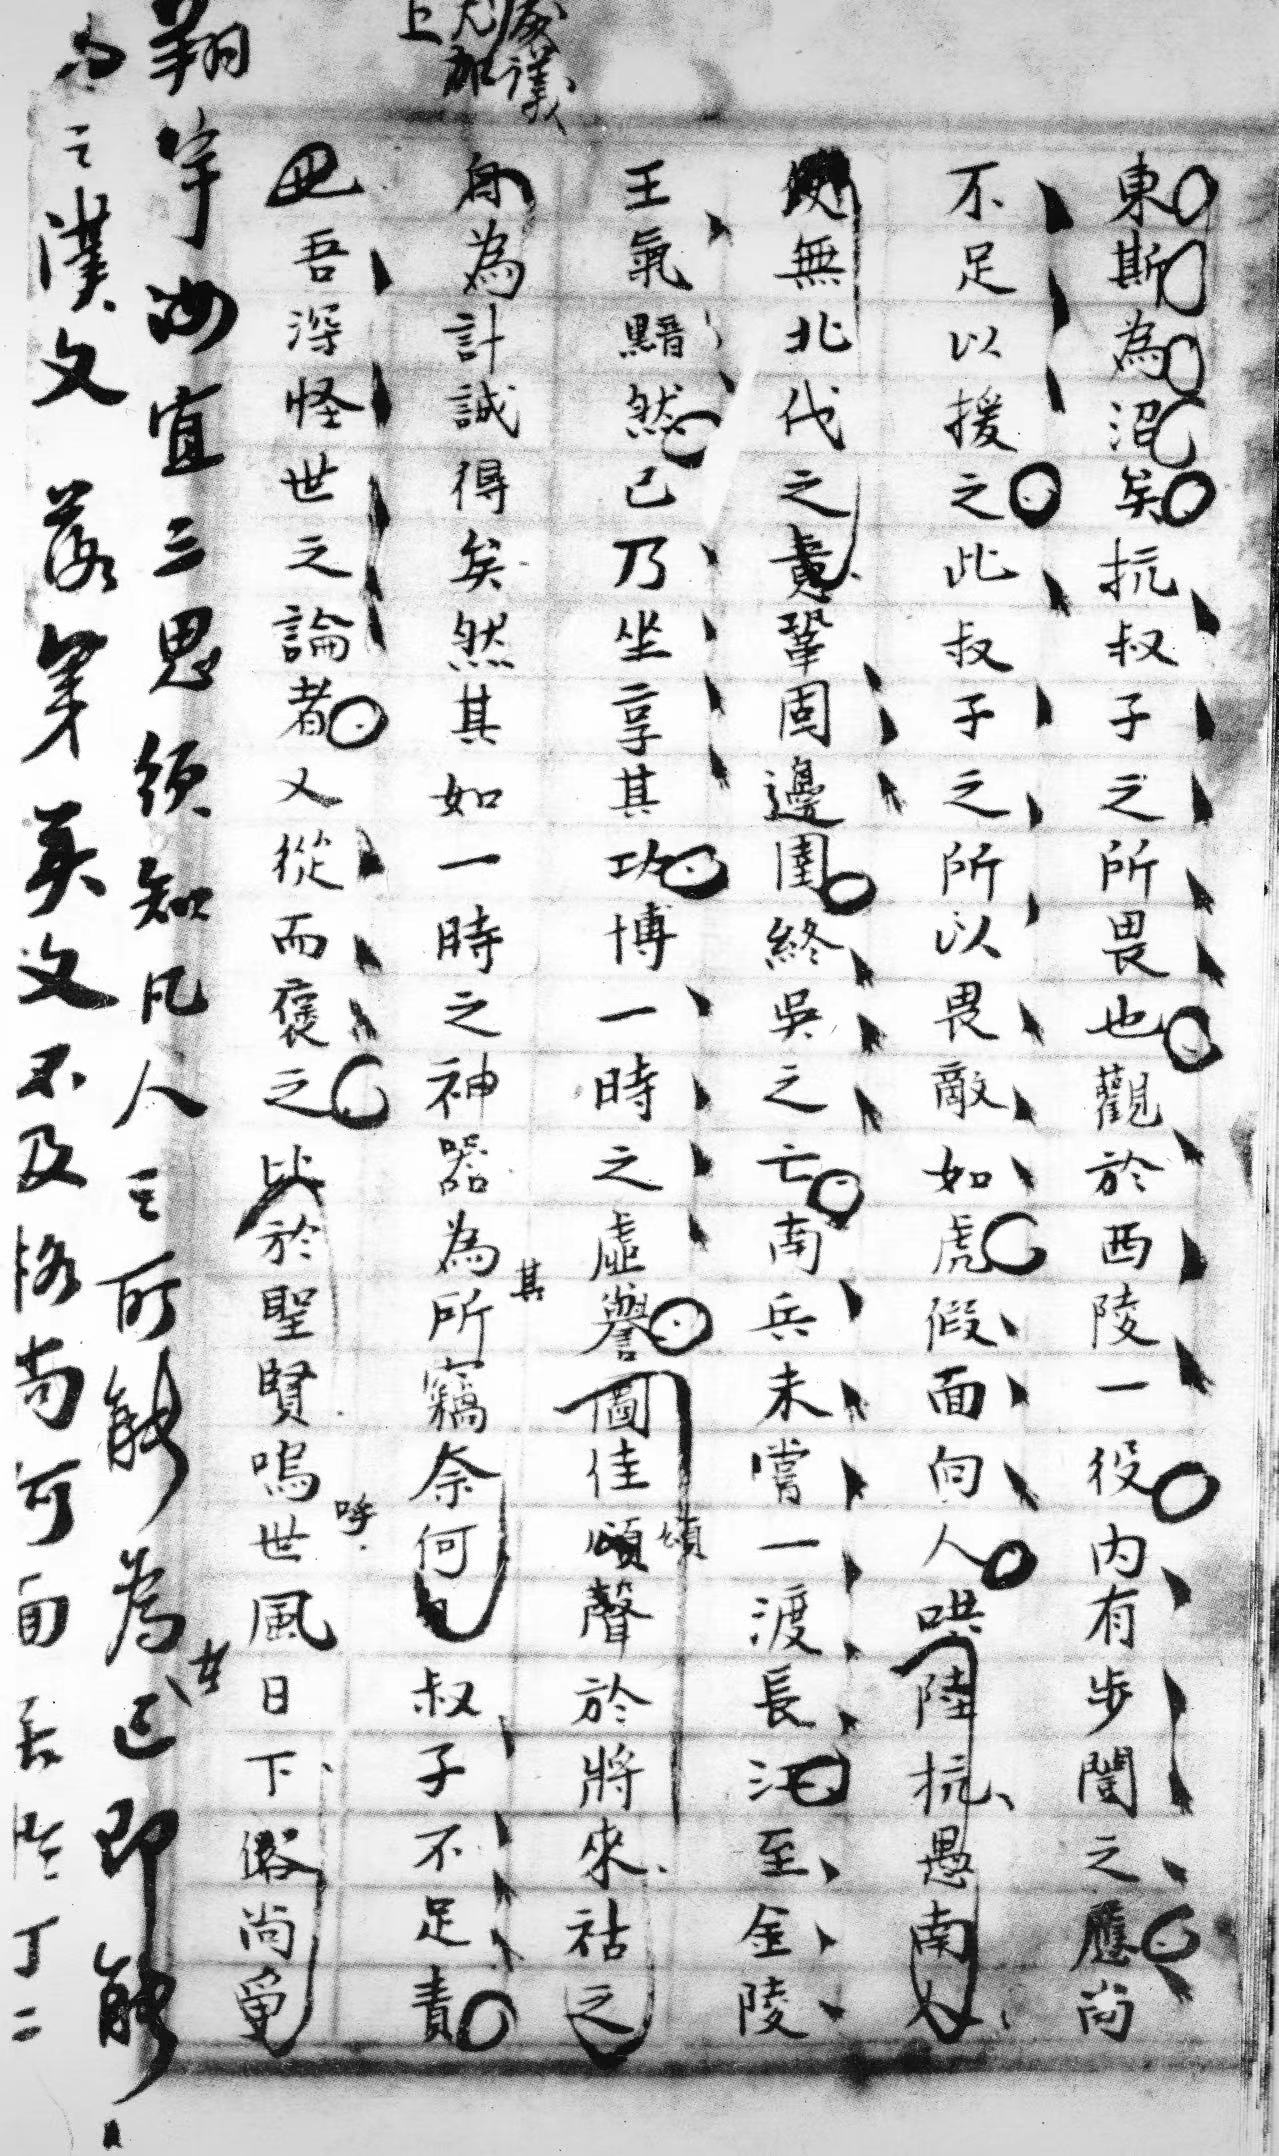 東斯為沼矣抗叔子之所畏也觀於西陵一役內有步闡之應尚
不足以援之此叔子之所以畏敵如虎假面向人哄陸抗愚南人
無北伐之責鞏固邊圉終吳之亡南兵未嘗一渡長江至金陵
王氣黯然己乃坐享其功博一時之虛譽圖佳頌聲於將來祜之
頌
身為計誠得矣然其如一時之神器為所竊奈何叔子不足責
其
吾深怪世之論者又從而褒之比於聖賢嗚世風日下綴尚爭
呼
議
上尤
翔宇汝宜三思須知凡人之所能為正即能
之漢文 英文不及格尚可